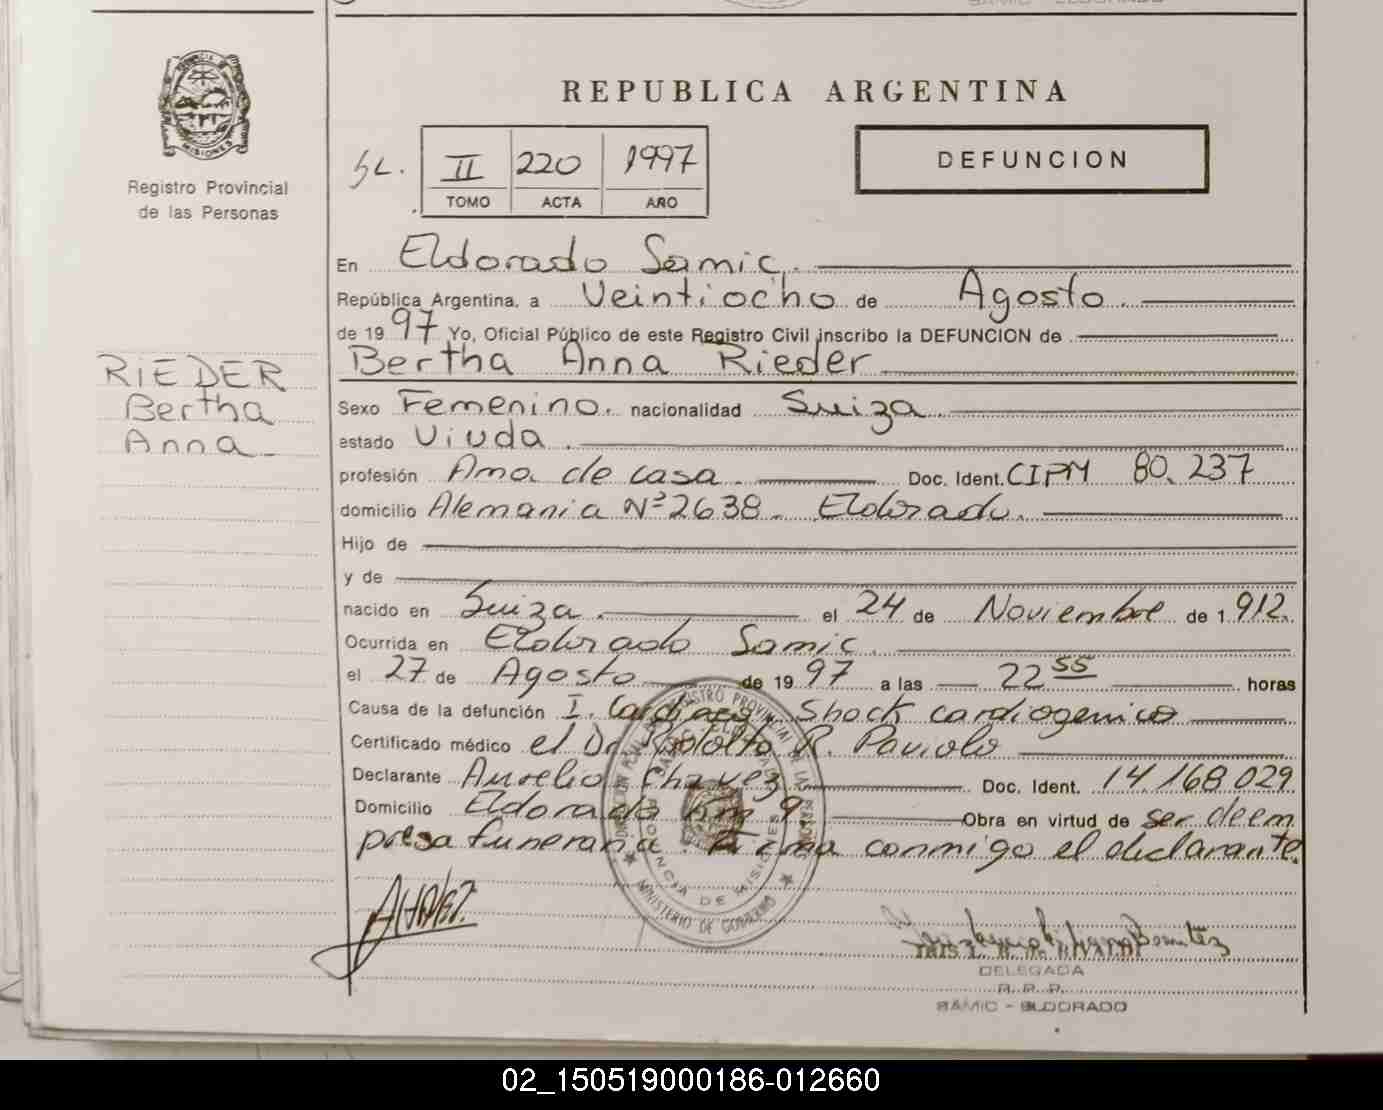 SAMIC - ELDORADO
PROVINCIA DE
MISIONES
Registro Provincial
de las Personas
REPUBLICA ARGENTINA
II 220 1997
TOMO ACTA AÑO
DEFUNCION
En Eldorado Samic.
República Argentina, a Veintiocho de Agosto.
de 1997 Yo, Oficial Público de este Registro Civil inscribo la DEFUNCION de
Bertha Anna Rieder
RIEDER
Bertha
Anna
Sexo Femenino. nacionalidad Suiza.
estado Viuda.
profesión Ama de casa. Doc. Ident. CIPM 80.237
domicilio Alemania Nº 2638. Eldorado.
Hijo de
y de
nacido en Suiza. el 24 de Noviembre de 1.912.
Ocurrida en Eldorado Samic.
el 27 de Agosto de 1997 a las 22 55 horas
Causa de la defunción I. Cardíaca, Shock cardiogenico
Certificado médico el Dr. Rodolfo R. Paviolo
Declarante Aurelio Chavez Doc. Ident. 14.168.029
Domicilio Eldorado Km 9 Obra en virtud de ser de em
presa funeraria. Firma conmigo el declarante.
REGISTRO PROVINCIAL DE LAS PERSONAS
PROVINCIA DE MISIONES
MINISTERIO DE GOBIERNO
Benitez
DELEGADA
R. P. P.
SAMIC - ELDORADO
02_150519000186-012660